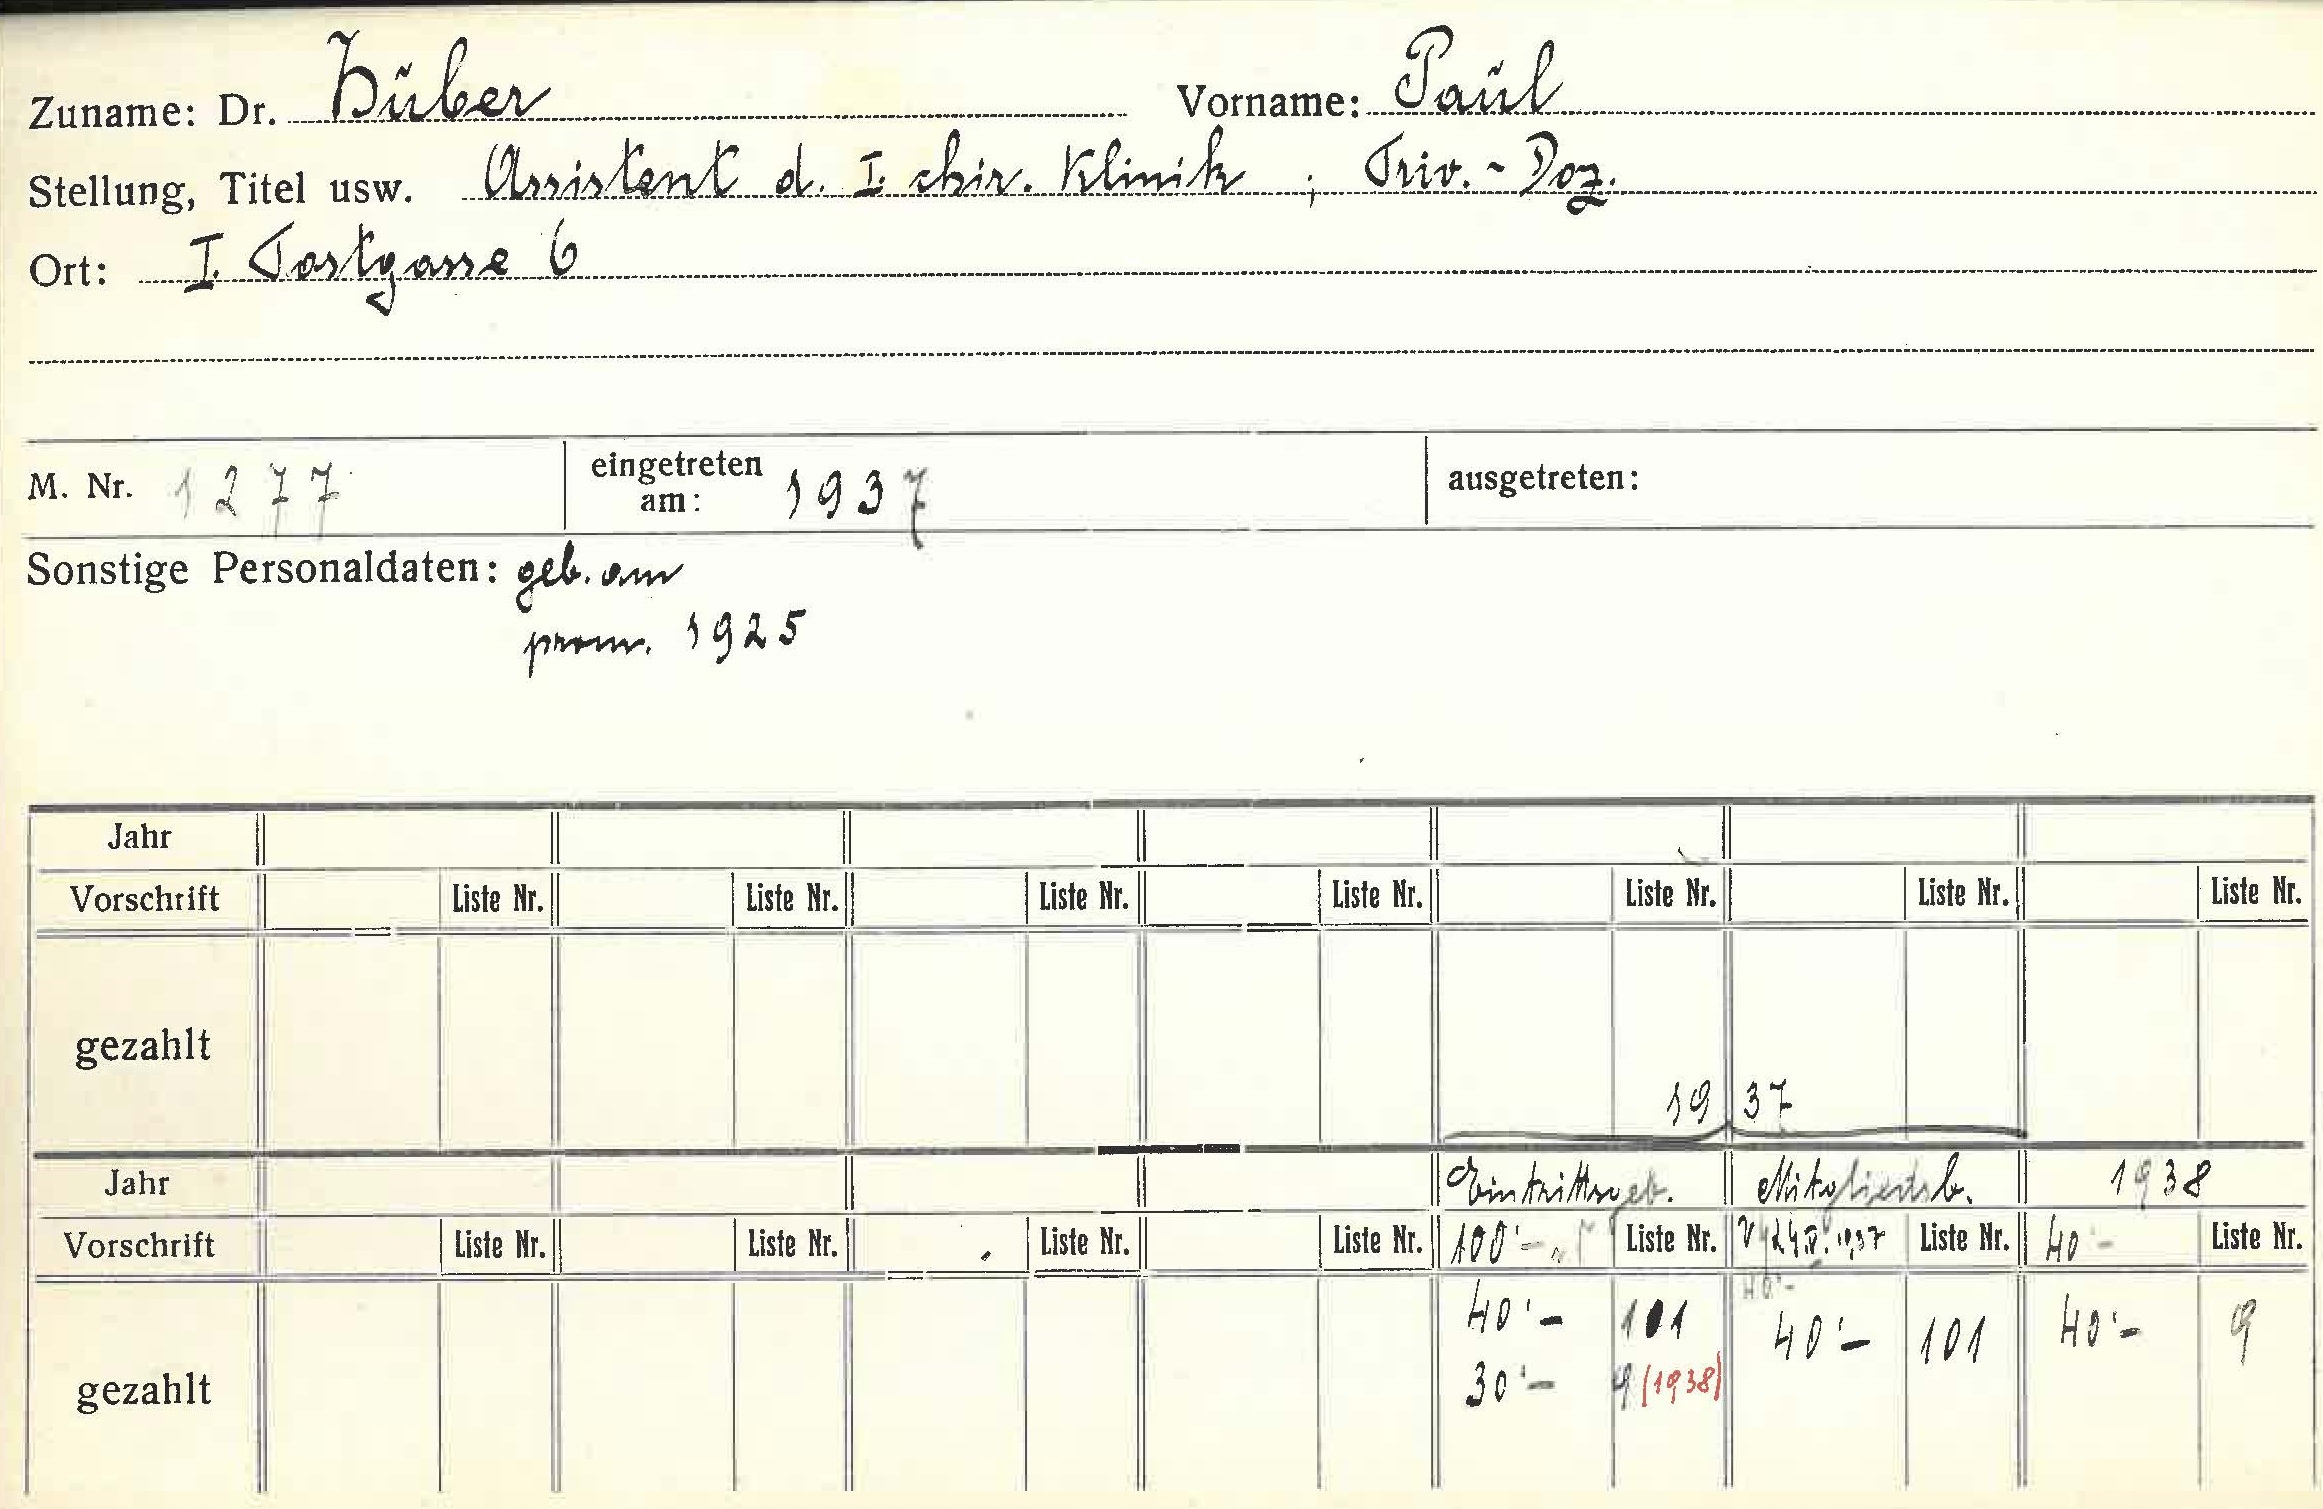 Zuname: Dr. Huber Vorname: Paul
Stellung, Titel usw. Assistent d. I. chir. Klinik; Priv.-Doz.
Ort: I. Postgasse 6
M. Nr. 1277 eingetreten am: 1937 ausgetreten:
Sonstige Personaldaten: geb. am
prom. 1925
Jahr
Vorschrift Liste Nr. Liste Nr. Liste Nr. Liste Nr. Liste Nr. Liste Nr. Liste Nr.
gezahlt
1937
Jahr Eintrittsgeb. Mitgliedsb. 1938
Vorschrift Liste Nr. Liste Nr. Liste Nr. Liste Nr. 100'- Liste Nr. Liste Nr. 40'- Liste Nr.
40'-
gezahlt 40'- 101 40'- 101 40'- 9
30'- 9 (1938)